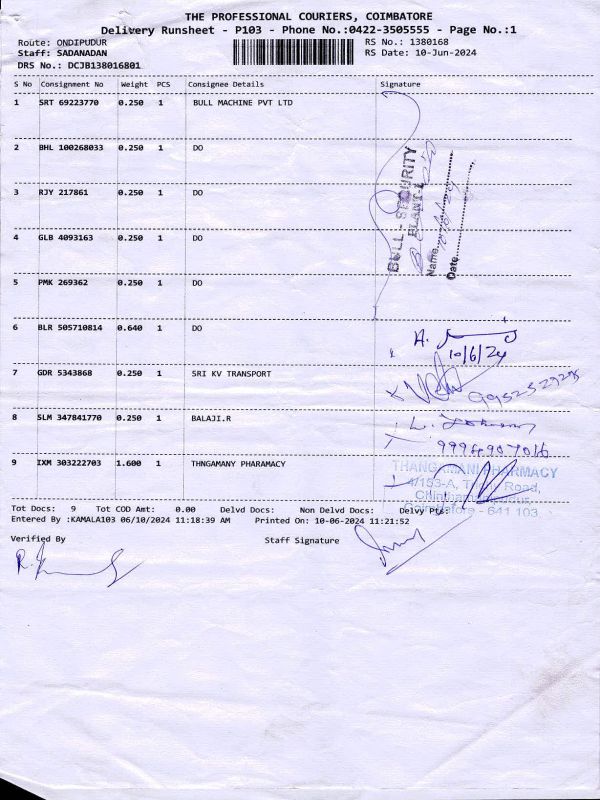 THE PROFESSIONAL COURIERS, COIMBATORE
Delivery Runsheet - P103 - Phone No.:0422-3505555 - Page No.:1
Route: ONDIPUDUR RS No.: 1380168
Staff: SADANADAN RS Date: 10-Jun-2024
DRS No.: DCJB138016801
S No Consignment No Weight PCS Consignee Details Signature
1 SRT 69223770 0.250 1 BULL MACHINE PVT LTD
2 BHL 100268033 0.250 1 DO
3 RJY 217861 0.250 1 DO
4 GLB 4093163 0.250 1 DO
5 PMK 269362 0.250 1 DO
BULL - SECURITY
PLANT-I
Name
Date
6 BLR 505710814 0.640 1 DO
10/6/24
7 GDR 5343868 0.250 1 SRI KV TRANSPORT
8 SLM 347841770 0.250 1 BALAJI.R
9 IXM 303222703 1.600 1 THNGAMANY PHARAMACY
THANGAMANI PHARMACY
4/153-A, Road,
Coimbatore - 641 103
Tot Docs: 9 Tot COD Amt: 0.00 Delvd Docs: Non Delvd Docs: Delvy Pts:
Entered By :KAMALA103 06/10/2024 11:18:39 AM Printed On: 10-06-2024 11:21:52
Verified By Staff Signature